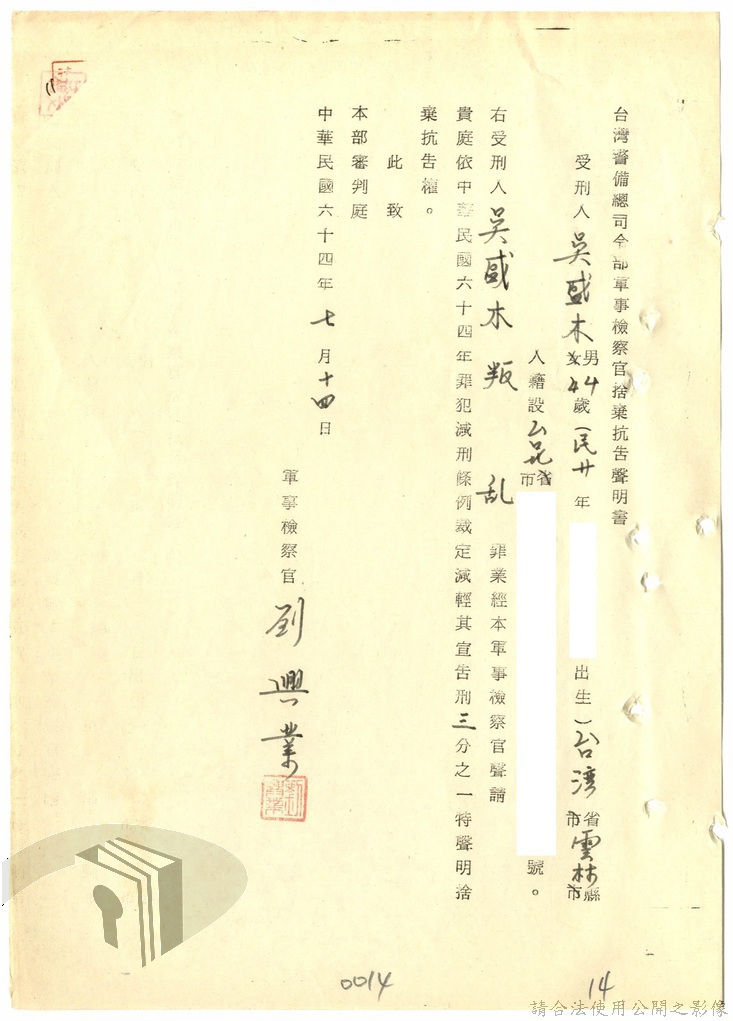 台灣警備總司令部軍事檢察官捨棄抗告聲明書
受刑人吳盛木男女44歲(民廿年出生)台湾省市雲林縣市
人籍設仝省市號。
右受刑人吳盛木叛乱罪業經本軍事檢察官聲請
貴庭依中華民國六十四年罪犯減刑條例裁定減輕其宣告刑三分之一特聲明捨
棄抗告權。
此致
本部審判庭
中華民國六十四年七月十四日
軍事檢察官劉興業
0014
14
請合法使用公開之影像